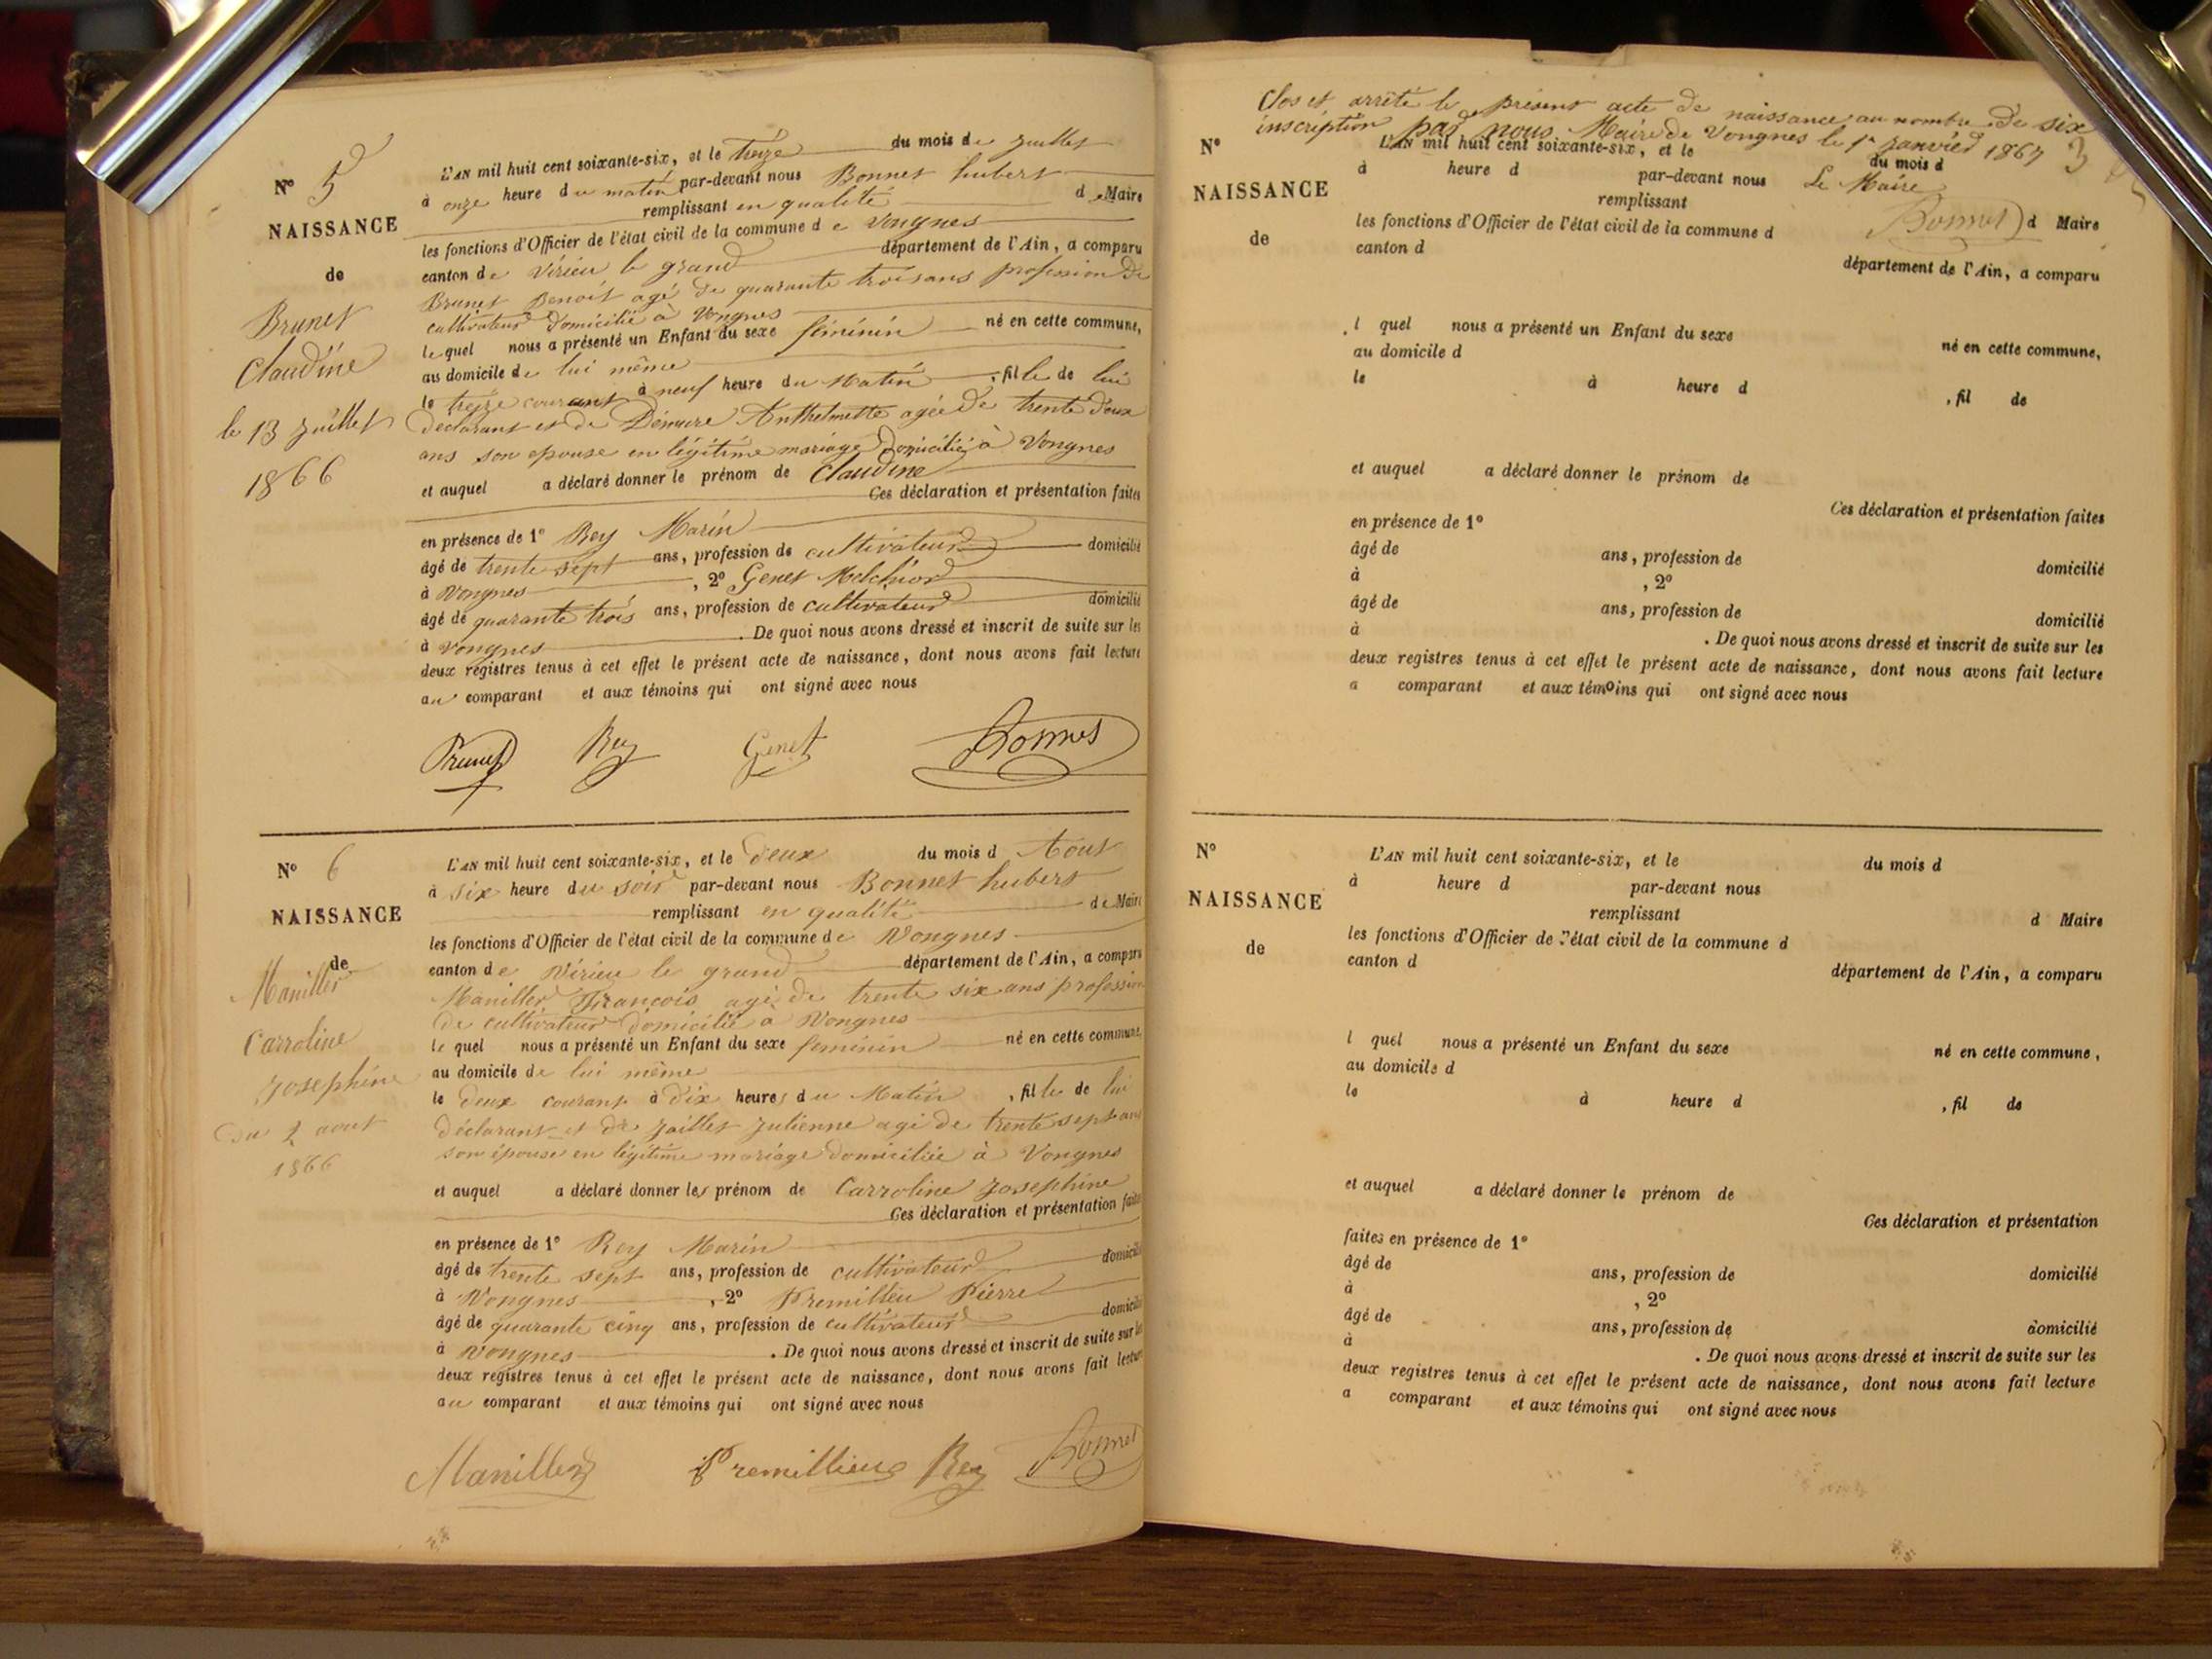 Nº 5
NAISSANCE
de
Brunet
Claudine
le 13 Juillet
1866
L'AN mil huit cent soixante-six, et le treize du mois de Juillet
à onze heure du matin par-devant nous Bonnet hubert
remplissant en qualité de Maire
les fonctions d'Officier de l'état civil de la commune de Vongnes
canton de Virieu le grand département de l'Ain, a comparu
Brunet Benoit agé de quarante trois ans profession De
cultivateur Domicilié à Vongnes
lequel nous a présenté un Enfant du sexe féminin né en cette commune,
au domicile de lui même
le treize courant à neuf heure du Matin, fille de lui
déclarant et de Démure Anthelmette agée De trente deux
ans son epouse en légitime mariage Domiciliée à Vongnes
et auquel a déclaré donner le prénom de Claudine
Ces déclaration et présentation faites
en présence de 1º Rey Marin
âgé de trente sept ans, profession de cultivateur domicilié
à Vongnes, 2º Genet Melchior
âgé de quarante trois ans, profession de cultivateur domicilié
à Vongnes. De quoi nous avons dressé et inscrit de suite sur les
deux registres tenus à cet effet le présent acte de naissance, dont nous avons fait lecture
au comparant et aux témoins qui ont signé avec nous
Brunet Rey Genet Bonnet
Nº 6
NAISSANCE
de
Maniller
Carroline
Josephine
Du 2 aout
1866
L'AN mil huit cent soixante-six, et le deux du mois d Aout
à six heure du soir par-devant nous Bonnet hubert
remplissant en qualité de Maire
les fonctions d'Officier de l'état civil de la commune de Vongnes
canton de Virieu le grand département de l'Ain, a comparu
Maniller François agé de trente six ans profession
de cultivateur domicilié à Vongnes
le quel nous a présenté un Enfant du sexe feminin né en cette commune,
au domicile de lui même
le deux courant à dix heures du Matin, fille de lui
déclarant et de Jaillet Julienne agé de trente sept ans
son épouse en légitime mariage domiciliée à Vongnes
et auquel a déclaré donner les prénom de Carroline Josephine
Ces déclaration et présentation faites
en présence de 1º Rey Marin
âgé de trente sept ans, profession de cultivateur domicilié
à Vongnes, 2º Premillieu Pierre
âgé de quarante cinq ans, profession de cultivateur domicilié
à Vongnes. De quoi nous avons dressé et inscrit de suite sur les
deux registres tenus à cet effet le présent acte de naissance, dont nous avons fait lecture
au comparant et aux témoins qui ont signé avec nous
Maniller Premillieu Rey Bonnet
Clos et arrêté le présent acte de naissance au nombre de six
inscription par nous Maire de Vongnes le 1er janvier 1867
Le Maire
Bonnet
3
Nº
NAISSANCE
de
L'AN mil huit cent soixante-six, et le du mois d
à heure d par-devant nous
remplissant d Maire
les fonctions d'Officier de l'état civil de la commune d
canton d département de l'Ain, a comparu
l quel nous a présenté un Enfant du sexe né en cette commune,
au domicile d
le à heure d , fil de
et auquel a déclaré donner le prénom de
Ces déclaration et présentation faites
en présence de 1º
âgé de ans, profession de domicilié
à , 2º
âgé de ans, profession de domicilié
à . De quoi nous avons dressé et inscrit de suite sur les
deux registres tenus à cet effet le présent acte de naissance, dont nous avons fait lecture
a comparant et aux témoins qui ont signé avec nous
Nº
NAISSANCE
de
L'AN mil huit cent soixante-six, et le du mois d
à heure d par-devant nous
remplissant d Maire
les fonctions d'Officier de l'état civil de la commune d
canton d département de l'Ain, a comparu
l quel nous a présenté un Enfant du sexe né en cette commune,
au domicile d
le à heure d , fil de
et auquel a déclaré donner le prénom de
Ces déclaration et présentation
faites en présence de 1º
âgé de ans, profession de domicilié
à , 2º
âgé de ans, profession de domicilié
à . De quoi nous avons dressé et inscrit de suite sur les
deux registres tenus à cet effet le présent acte de naissance, dont nous avons fait lecture
a comparant et aux témoins qui ont signé avec nous